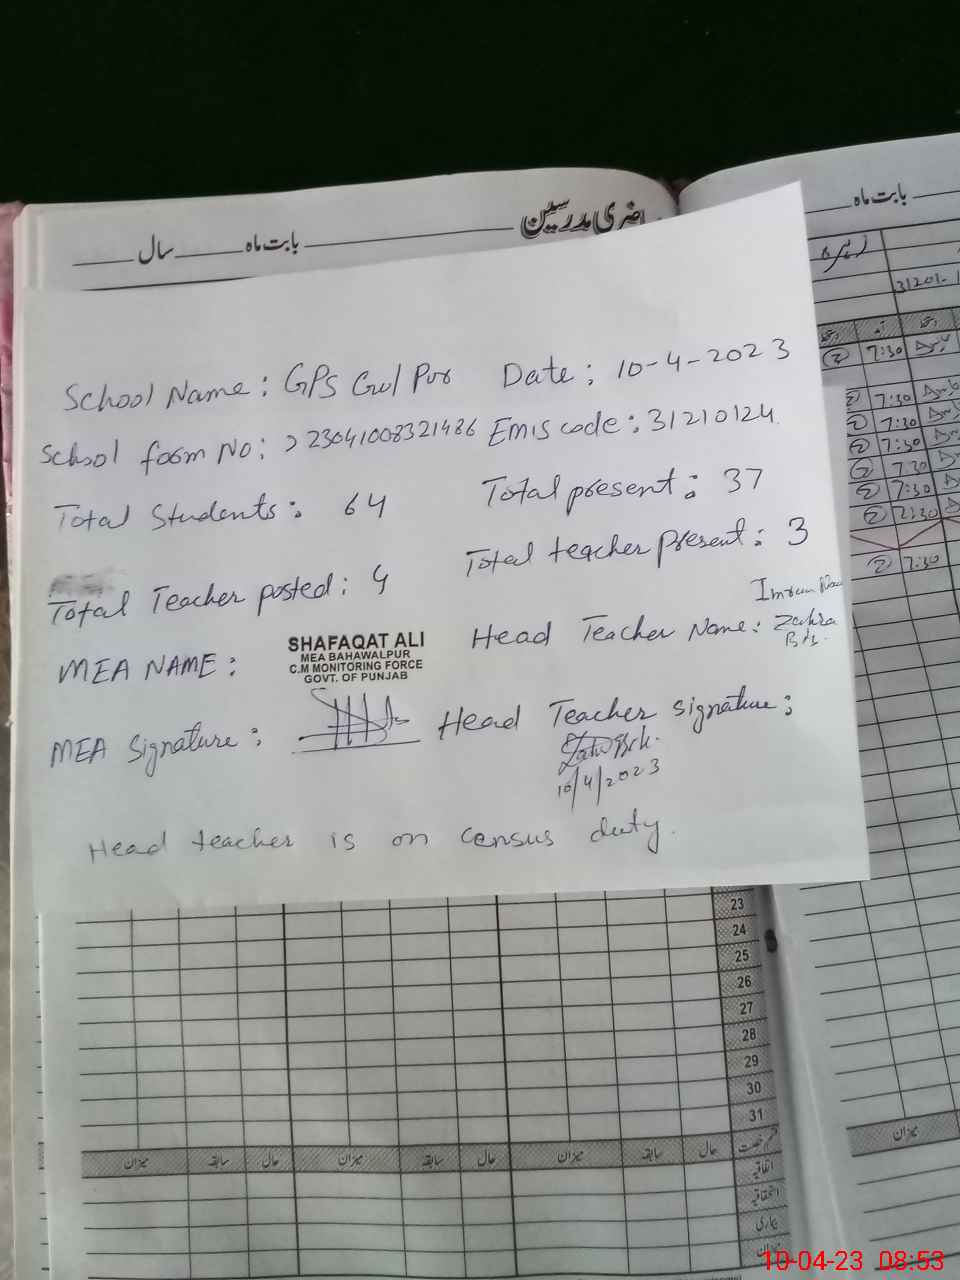 ضری مدرسین بابت ماہ سال
بابت ماہ
زہرہ
31201-
School Name: GPS Gul Pur Date: 10-4-2023
School form No: > 23041008321486 Emis code: 31210124
Total Students: 64 Total present: 37
Total Teacher posted: 4 Total teacher present: 3
MEA NAME: SHAFAQAT ALI
MEA BAHAWALPUR
C.M MONITORING FORCE
GOVT. OF PUNJAB
Head Teacher Name: Imran
Zahra
Bibi
MEA Signature: Head Teacher Signature:
10/4/2023
Head teacher is on census duty.
7:30
7:30
7:30
7:30
7:30
7:30
7:30
23
24
25
26
27
28
29
30
31
قسم رخصت حال سابقہ میزان حال سابقہ میزان حال سابقہ میزان
اتفاقیہ
استحقاقیہ
بیماری
میزان
میزان
10-04-23 08:53